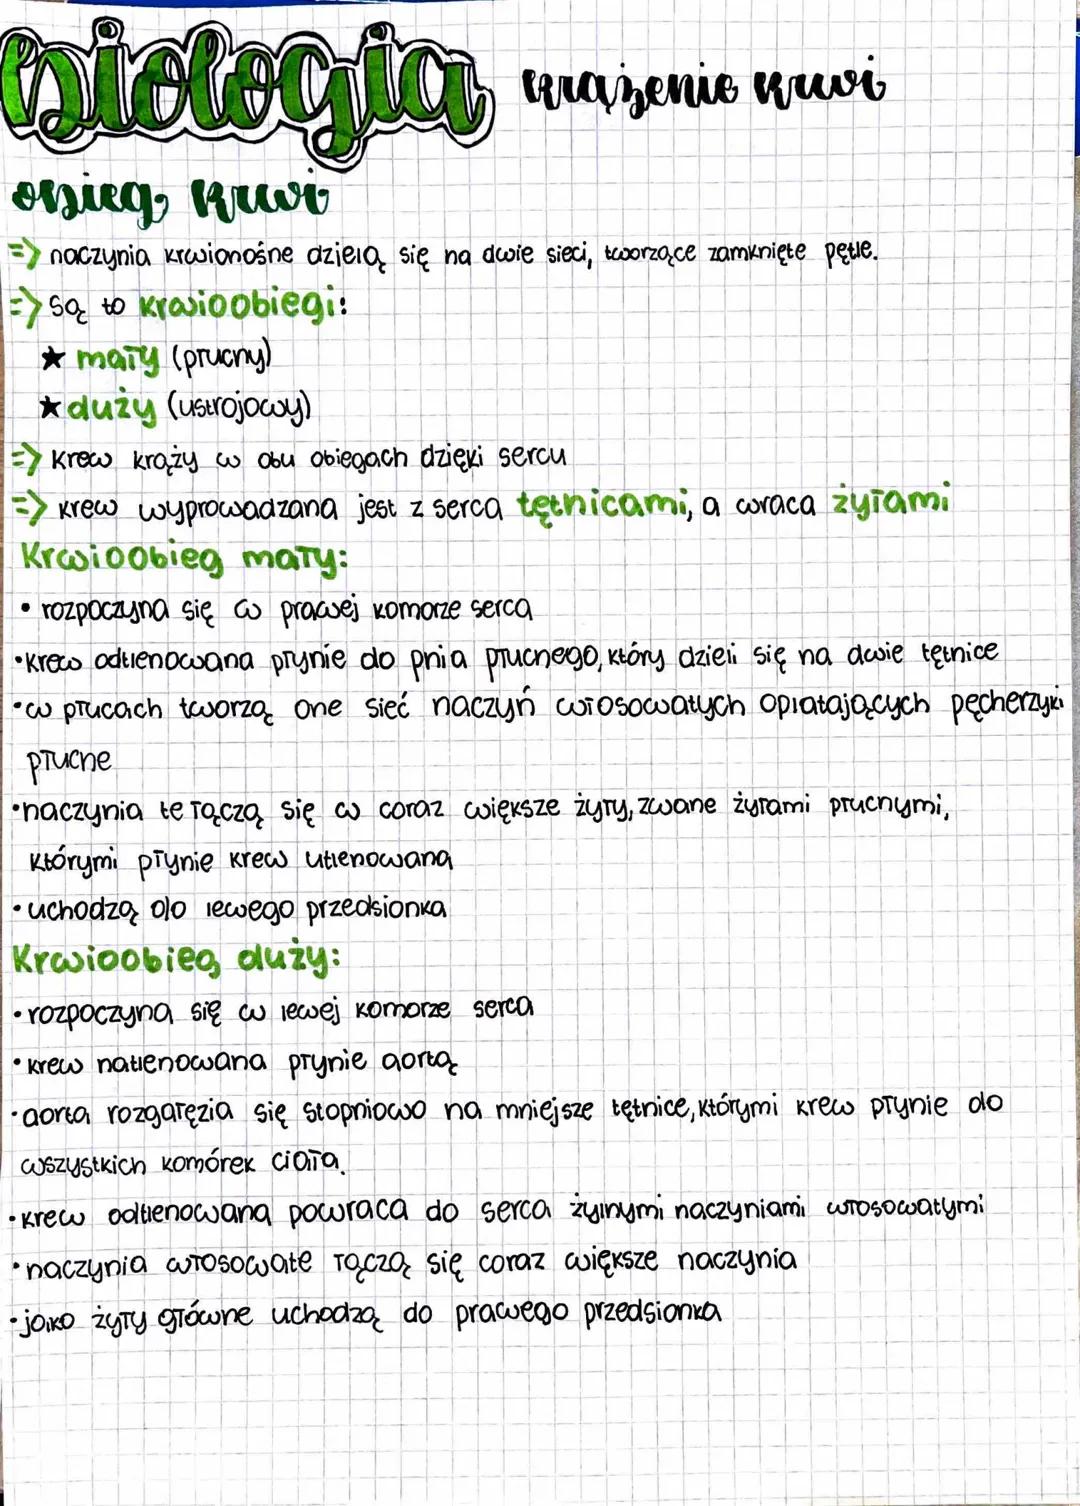 Biologia krążenie krwi
obieg krwi
=> naczynia krwionośne dzielą się na dwie sieci, tworzące zamknięte pętle.
=> są to krwioobiegi:
★ mały (płucny)
★ duży (ustrojowy)
=> krew krąży w obu obiegach dzięki sercu
=> krew wyprowadzana jest z serca tętnicami, a wraca żyłami
Krwioobieg mały:
• rozpoczyna się w prawej komorze serca
• krew odtlenowana płynie do pnia płucnego, który dzieli się na dwie tętnice
• w płucach tworzą one sieć naczyń włosowatych oplatających pęcherzyki
płucne
• naczynia te łączą się w coraz większe żyły, zwane żyłami płucnymi,
którymi płynie krew utlenowana
• uchodzą do lewego przedsionka
Krwioobieg duży:
• rozpoczyna się w lewej komorze serca
• krew natlenowana płynie aortą
• aorta rozgałęzia się stopniowo na mniejsze tętnice, którymi krew płynie do
wszystkich komórek ciała.
• krew odtlenowana powraca do serca żylnymi naczyniami włosowatymi
• naczynia włosowate łączą się coraz większe naczynia
• jako żyły główne uchodzą do prawego przedsionka